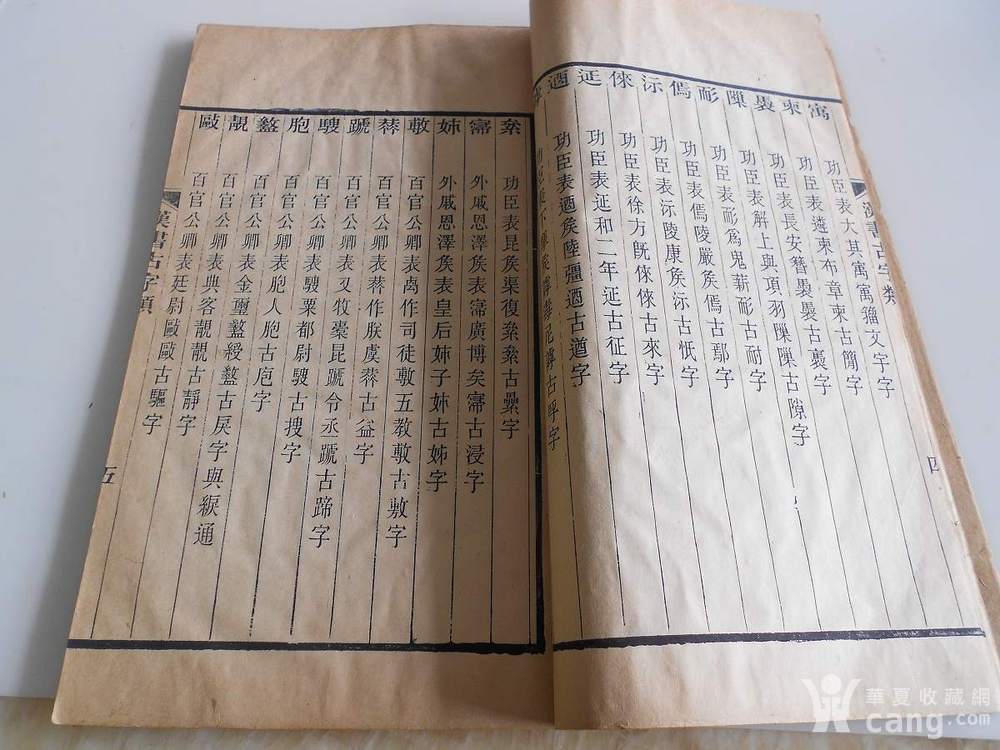 漢書古字類
四
寓 功臣表大其寓寓籀文宇字
柬 功臣表遴柬布章柬古簡字
褭 功臣表長安簪褭褭古裹字
隟 功臣表解上與項羽隟隟古隙字
耏 功臣表耏爲鬼薪耏古耐字
傿 功臣表傿陵嚴矦傿古鄢字
泜 功臣表泜陵康矦泜古忯字
俫 功臣表徐方旣俫俫古來字
延 功臣表延和二年延古征字
逎 功臣表逎矦陸彊逎古遒字
絫 功臣表昆矦渠復絫絫古纍字
寖 外戚恩澤矦表寖廣博矣寖古浸字
姊 外戚恩澤矦表皇后姊子姊古姊字
敷 百官公卿表卨作司徒敷五教敷古敷字
𦴩 百官公卿表𦴩作朕虞𦴩古益字
蹏 百官公卿表又牧橐昆蹏令丞蹏古蹄字
騪 百官公卿表騪粟都尉騪古搜字
胞 百官公卿表胞人胞古庖字
盭 百官公卿表金璽盭綬盭古戾字與綟通
靚 百官公卿表典客靚靚古靜字
敺 百官公卿表廷尉敺敺古驅字
漢書古字類
五
華夏收藏網
cang.com